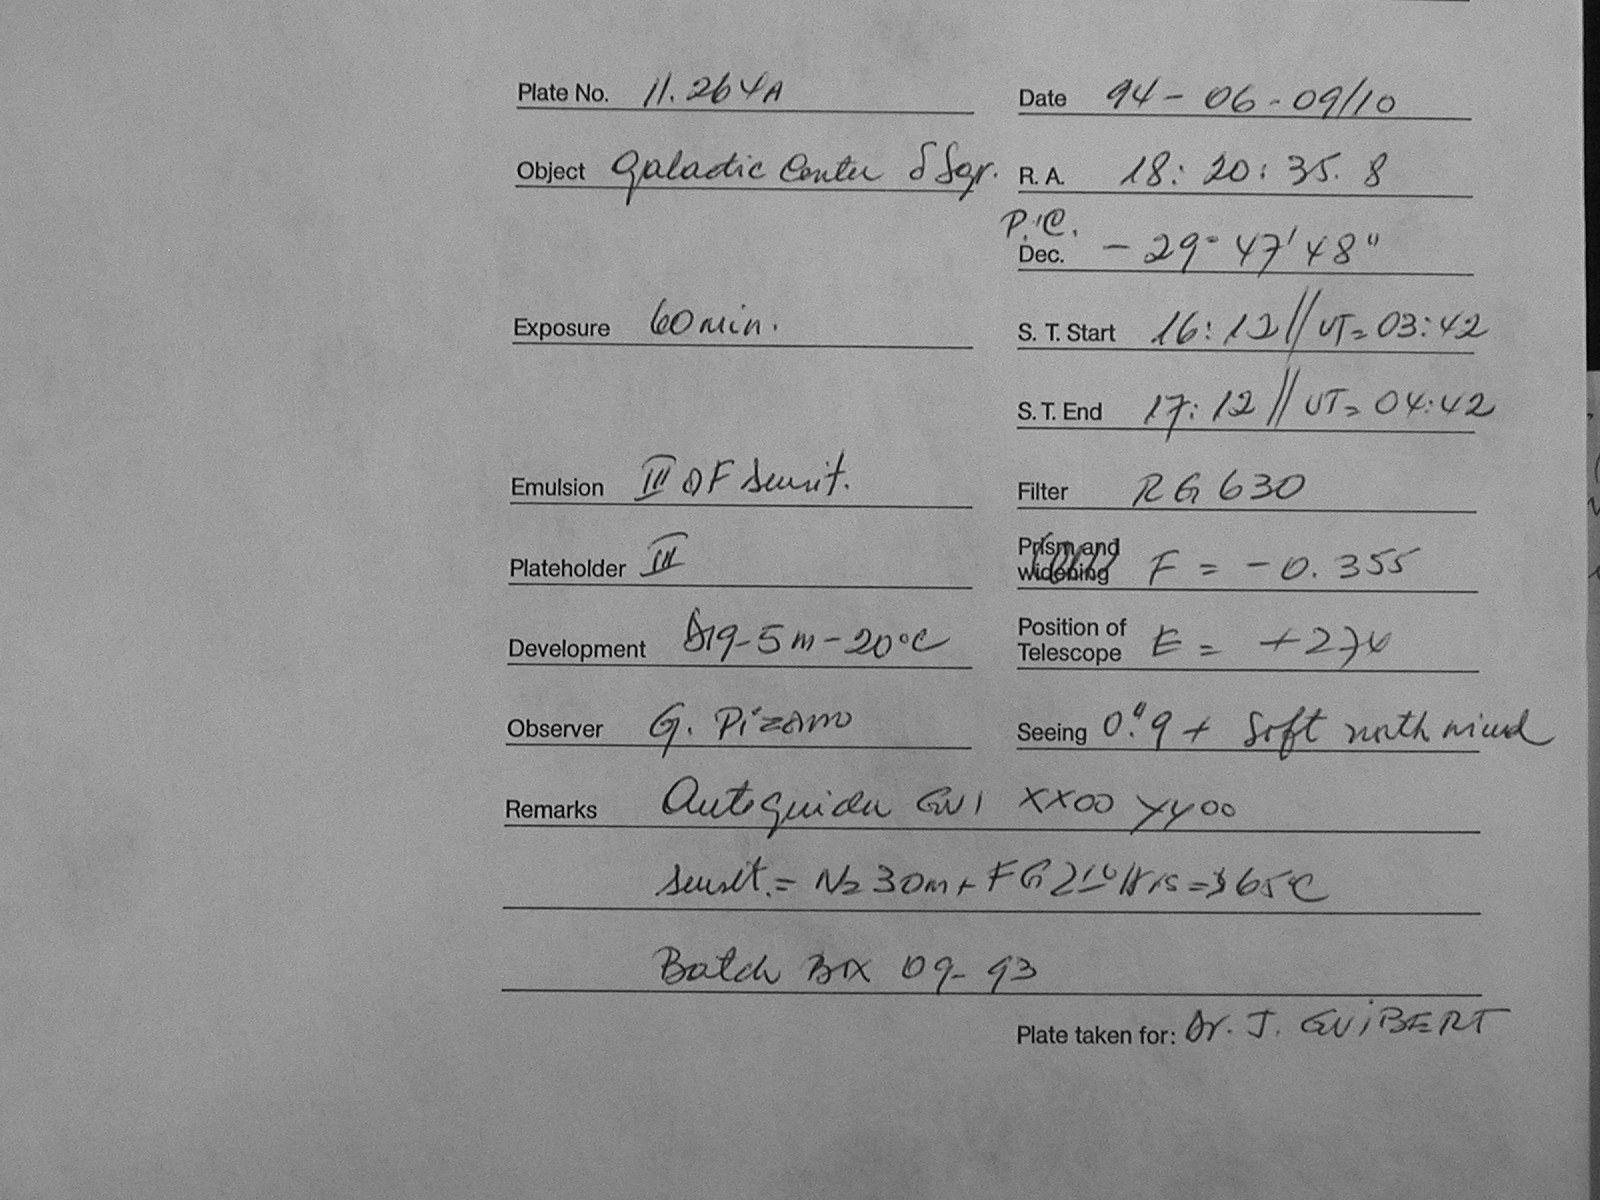 Plate No. 11.264A Date 94-06-09/10
Object Galactic Center δ Sgr. R. A. 18: 20: 35. 8
P.C.
Dec. - 29° 47' 48"
Exposure 60 min. S. T. Start 16: 12 // UT= 03:42
S. T. End 17: 12 // UT= 04:42
Emulsion III aF sensit. Filter RG 630
Plateholder III Prism and widening F = -0. 355
Development D19-5m-20°C Position of Telescope E = +274
Observer G. Pizarro Seeing 0."9 + Soft north wind
Remarks Autoguider GV1 XX00 YY00
sensit. = N2 30m + FG Hrs = 65°C
Batch Box 09-93
Plate taken for: Dr. J. GUIBERT